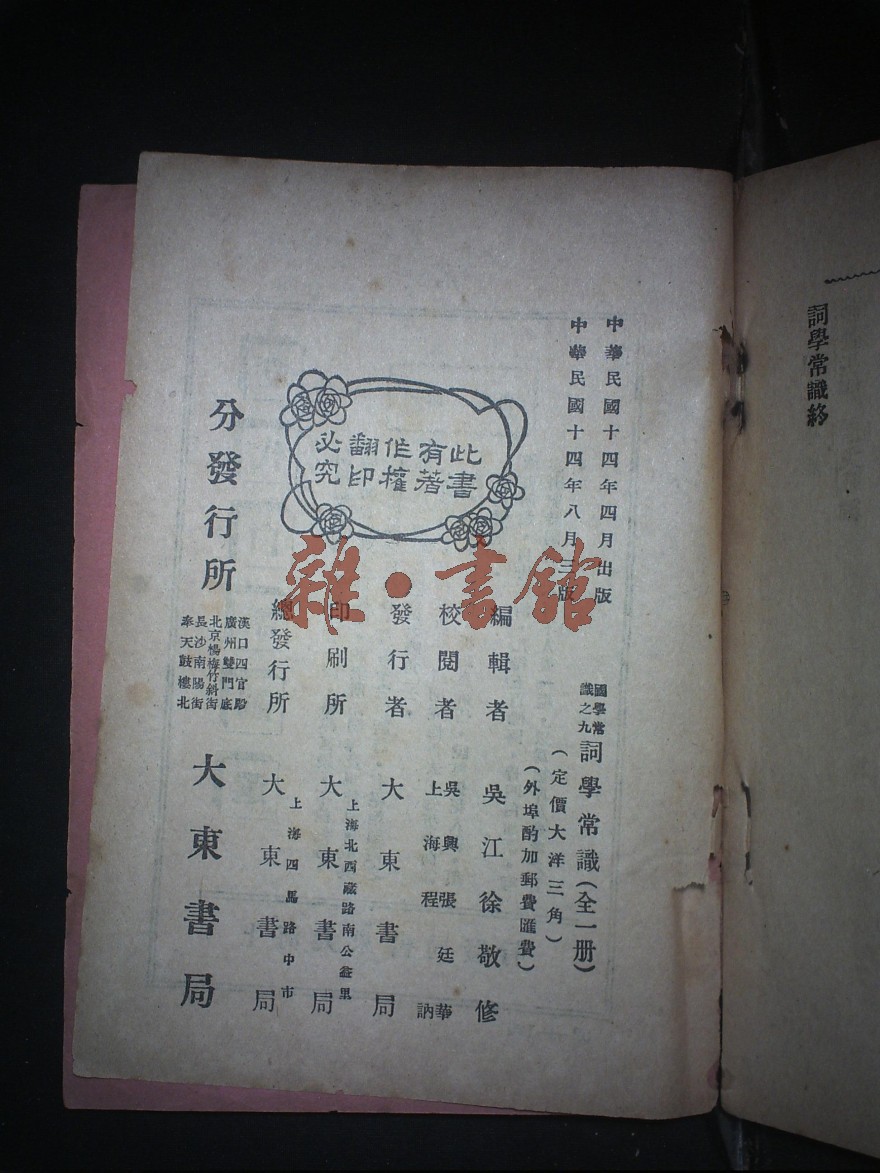 詞學常識終
中華民國十四年四月出版
中華民國十四年八月三版
國學常
識之九
詞學常識(全一册)
(定價大洋三角)
(外埠酌加郵費匯費)
此書
有著
作權
翻印
必究
編輯者 吳江徐敬修
校閱者 吳興張廷華
上海程 訥
發行者 大東書局
印刷所 上海北西藏路南公益里
大東書局
總發行所 上海四馬路中市
大東書局
分發行所
漢口四官殿
廣州雙門底
北京楊梅竹斜街
長沙南陽街
奉天鼓樓北
大東書局
雜·書館